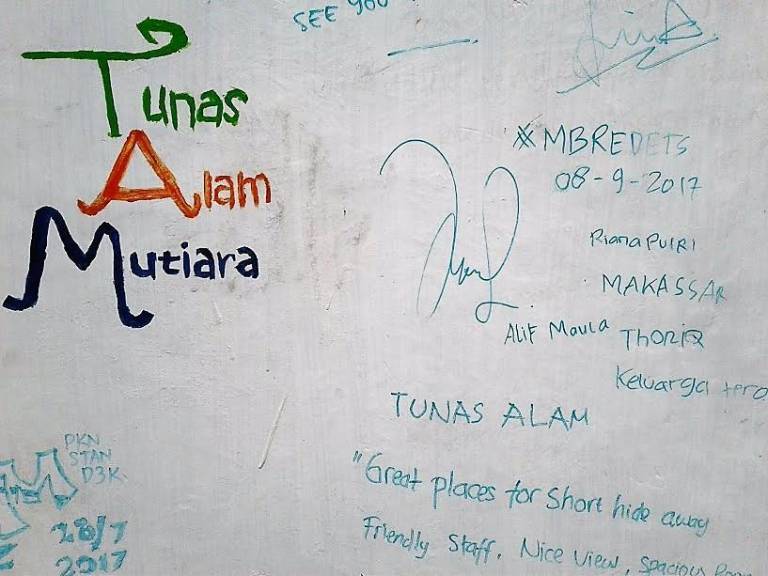 SEE YOU
Tunas
Alam
Mutiara
#MBREDETS
08-9-2017
Riana Putri
MAKASSAR
Alif Maula THORIQ
Keluarga
TUNAS ALAM
"Great places for short hide away
Friendly staff. Nice view, spacious
PKN
STAN
D3K
28/7
2017